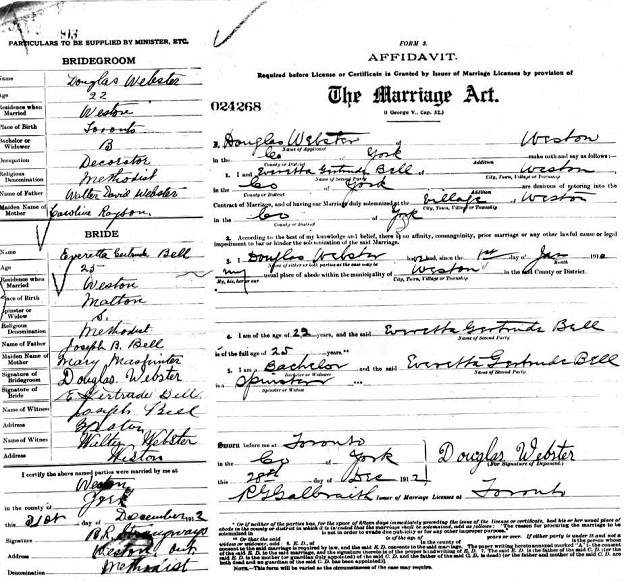 813
PARTICULARS TO BE SUPPLIED BY MINISTER, ETC.
BRIDEGROOM
Name Douglas Webster
Age 22
Residence when Married Weston
Place of Birth Toronto
Bachelor or Widower B
Occupation Decorator
Religious Denomination Methodist
Name of Father Walter David Webster
Maiden Name of Mother Caroline
BRIDE
Name Everetta Gertrude Bell
Age 25
Residence when Married Weston
Place of Birth Malton
Spinster or Widow S.
Religious Denomination Methodist
Name of Father Joseph B. Bell
Maiden Name of Mother Mary
Signature of Bridegroom Douglas Webster
Signature of Bride E Gertrude Bell
Name of Witness Joseph Bell
Address Weston
Name of Witness Walter Webster
Address Weston
I certify the above named parties were married by me at
Weston
in the county of York
this 31st day of December 1912
Signature B.R. Strangways
Address Weston, Ont
Denomination Methodist
FORM 3.
AFFIDAVIT.
Required before License or Certificate is Granted by Issuer of Marriage Licenses by provision of
024268
The Marriage Act.
(1 George V., Cap. 32.)
I, Douglas Webster of Weston
Name of Applicant
in the Co York make oath and say as follows:—
County or District Addition City, Town, Village or Township
1. I and Everetta Gertrude Bell of Weston
Name of Second Party
in the Co York are desirous of entering into the
County or District Addition City, Town, Village or Township
Contract of Marriage, and of having our Marriage duly solemnized at the Village of Weston
in the Co of York
County or District City, Town, Village or Township
2. According to the best of my knowledge and belief, there is no affinity, consanguinity, prior marriage or any other lawful cause or legal
impediment to bar or hinder the solemnization of the said Marriage.
3. I Douglas Webster had since the 1st day of Jan 191
Name of either or both parties as the case may be Month
my usual place of abode within the municipality of Weston in the said County or District.
My, his, her or our City, Town, Village or Township
4. I am of the age of 22 years, and the said Everetta Gertrude Bell
Name of Second Party
is of the full age of 25 years.
5. I am a Bachelor and the said Everetta Gertrude Bell
Bachelor or Widower Name of Second Party
a Spinster
Spinster or Widow
Sworn before me at Toronto
in the Co of York
this 28th day of Dec 1912
Douglas Webster
(For Signature of Deponent.)
Galbraith Issuer of Marriage Licenses at Toronto
NOTE.—This form will be varied as the circumstances of the case may require.